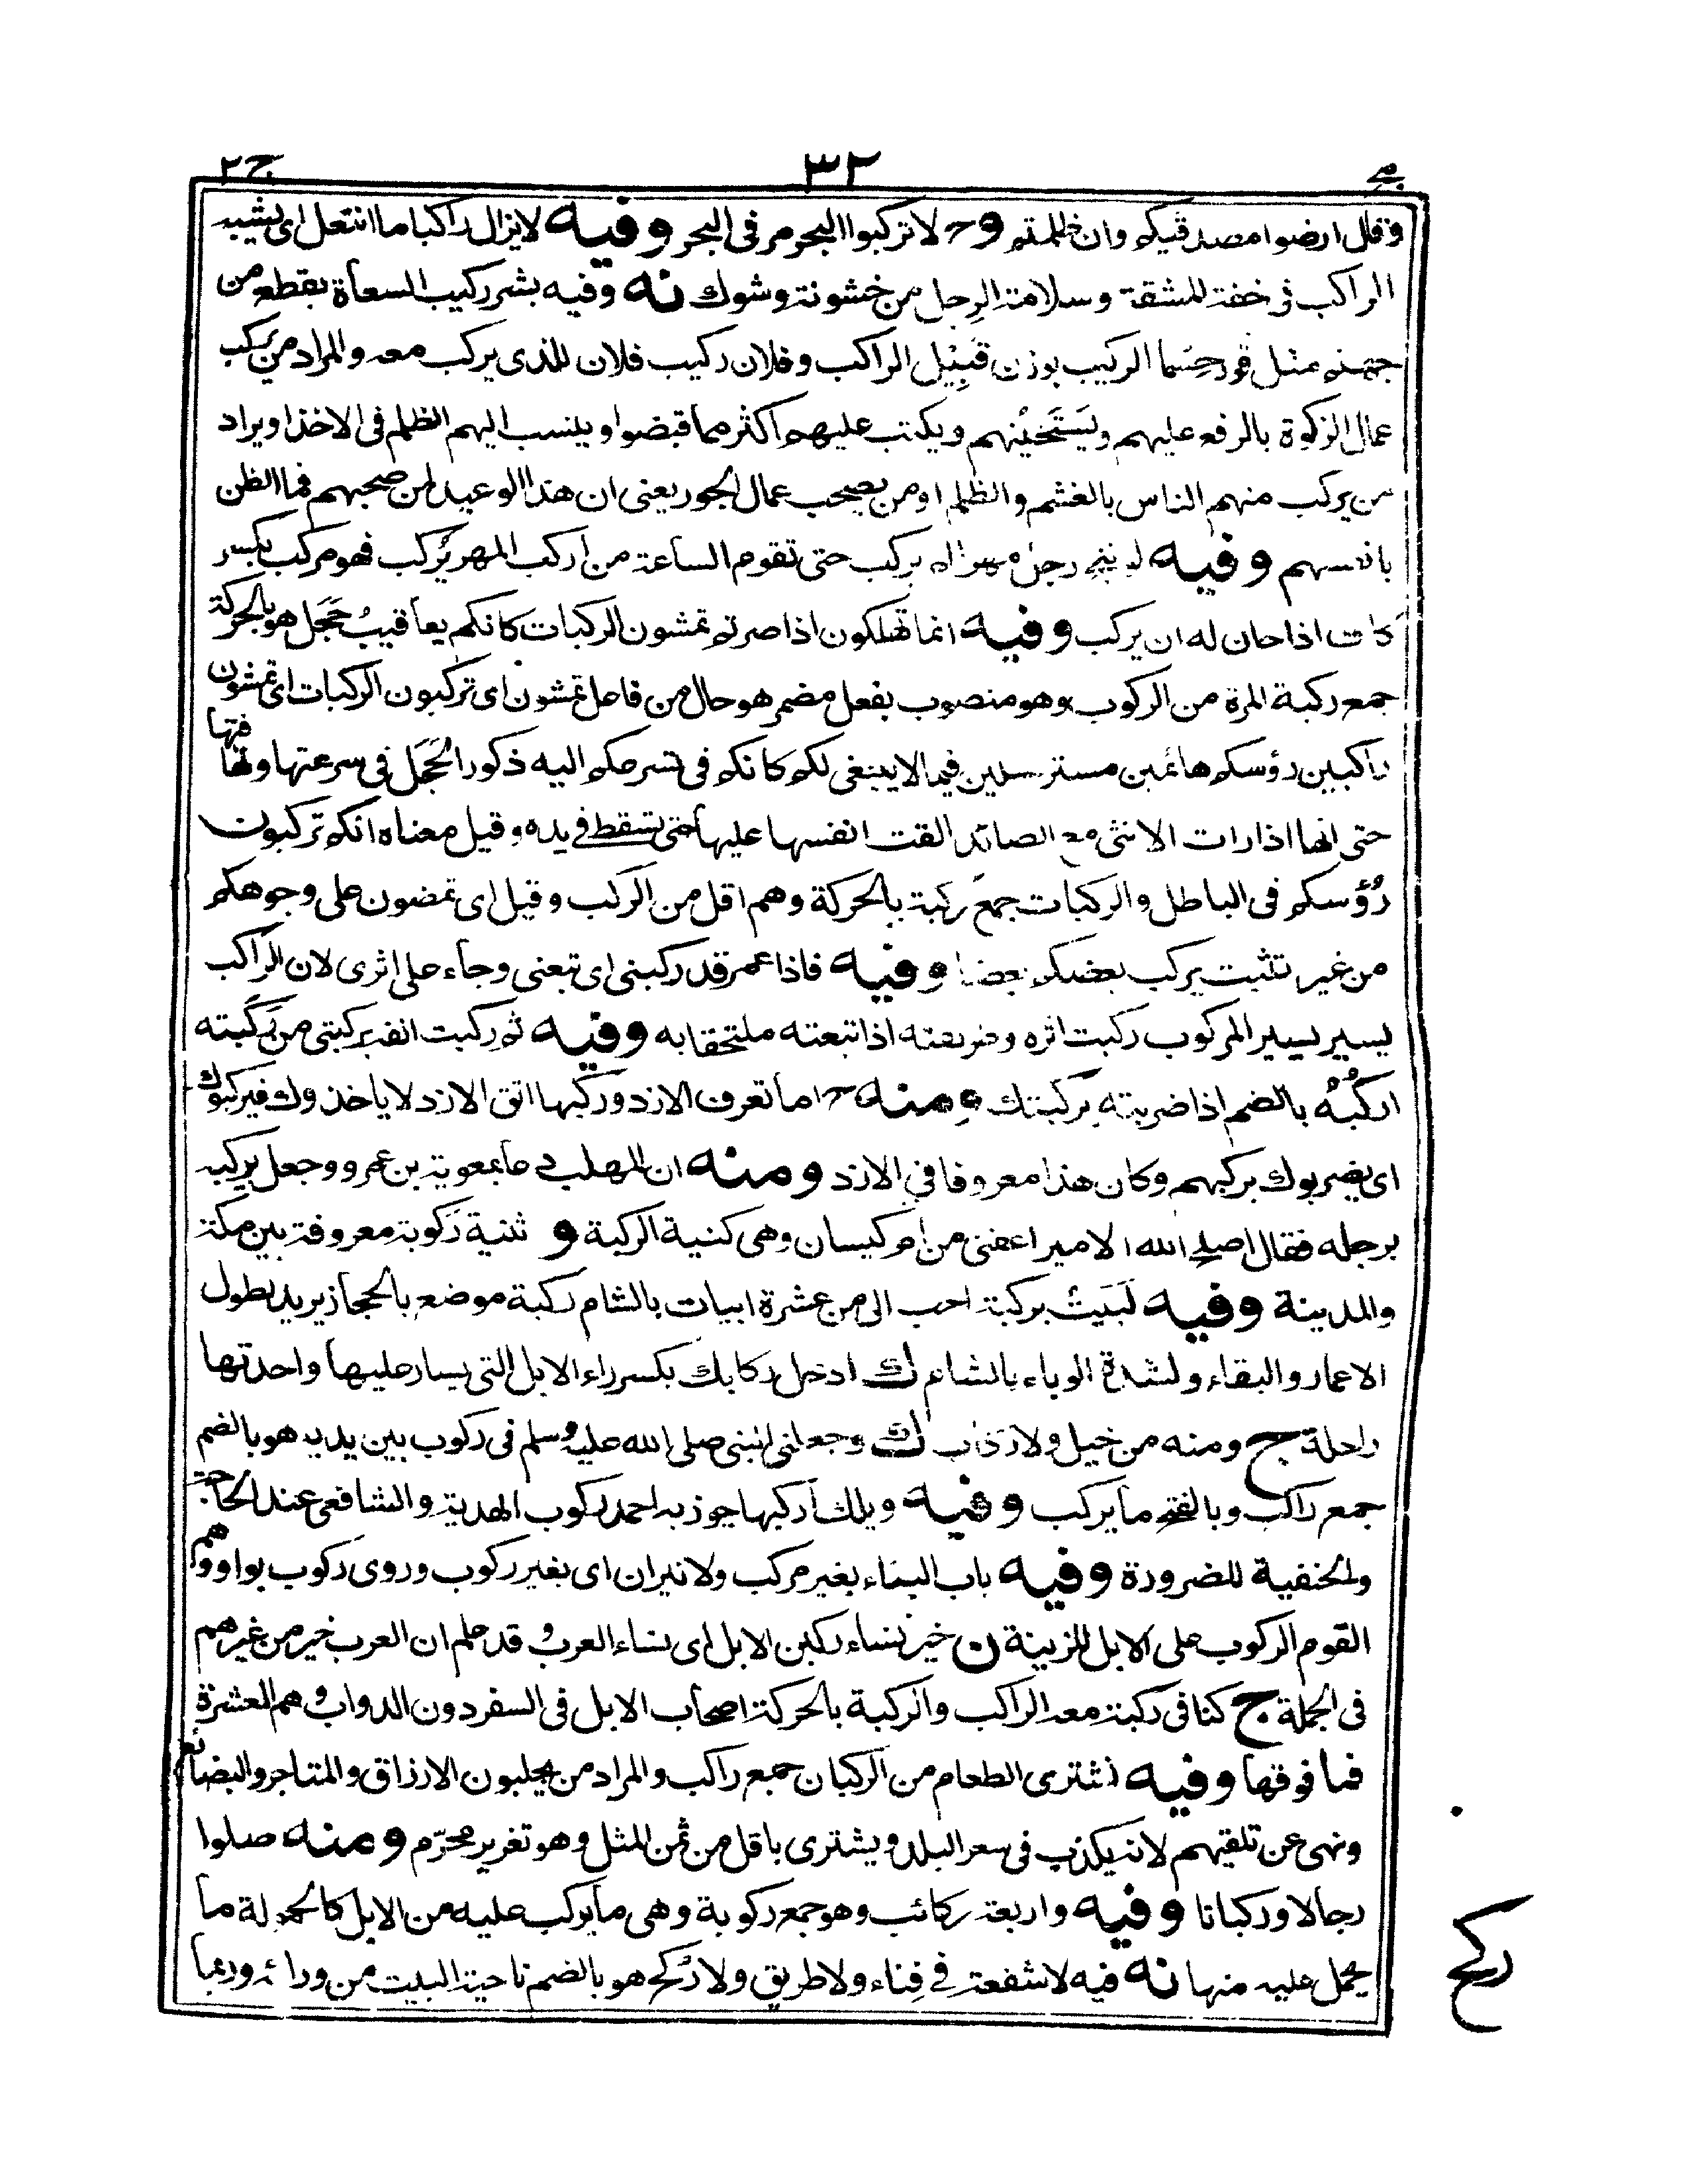 ج٢ ٣٢
وقال ارضوا مصدقيكم وان ظلمتم وح لا تركبوا البحر مر فى البحر وفيه لا يزال راكبا ما انتعل اى يشبه
الراكب فى خفة المشقة وسلامة الرجل من خشونة وشوك نه وفيه بشر ركيب السعاة بقطع من
جهنم مثل قور حسما الركيب بوزن قَبِيْل الراكب وفلان ركيب فلان للذى يركب معه والمراد من يركب
عمال الزكوة بالرفع عليهم ويَسْتَخينهم ويكتب عليهم اكثر مما قبضوا وينسب اليهم الظلم فى الاخذ او يراد
من يركب منهم الناس بالغشم والظلم او من يصحب عمال الجور يعنى ان هذا الوعيد لمن صحبهم فما الظن
بانفسهم وفيه لو نتج رجل مهرا لم يركب حتى تقوم الساعة من اركب المهر يُركب فهو مركب بكسر
كاف اذا حان له ان يركب وفيه انما تهلكون اذا صرتم تمشون الركبات كانكم يعاقيبُ حَجَل هو بالحركة
جمع ركبة المرة من الركوب وهو منصوب بفعل مضمر هو حال من فاعل تمشون اى تركبون الركبات اى تمشون
راكبين رؤسكم هائمين مسترسلين فيما لا ينبغى لكم كانكم فى تسرعكم اليه ذكور الحَجَل فى سرعتها وتهافتها
حتى انها اذا رات الانثى مع الصائد القت انفسها عليها حتى تسقط فى يده وقيل معناه انكم تركبون
رُؤسكم فى الباطل والركبات جمع رَكَبة بالحركة وهم اقل من الركب وقيل اى تمضون على وجوهكم
من غير تثبت يركب بعضكم بعضا وفيه فاذا عمر قد ركبنى اى تبعنى وجاء على اثرى لان الراكب
يسير بسير المركوب ركبت اثره وطريقته اذا تبعته ملتحقا به وفيه ثم ركبت انفه بركبتى من رَكَبته
اركُبُه بالضم اذا ضربته بركبتك ومنه ح اما تعرف الازد وركبها اتق الازد لا ياخذوك فيركبوك
اى يضربوك بركبهم وكان هذا معروفا فى الازد ومنه ان المهلب دعا بمعوية بن عمرو وجعل يركبه
برجله فقال اصلح الله الامير اعفنى من ام كيسان وهى كنية الركبة و ثنية رَكوبة معروفة بين مكة
والمدينة وفيه لَبَيتٌ بركبة احب الى من عشرة ابيات بالشام ركبة موضع بالحجاز يريد بطول
الاعمار والبقاء ولشدة الوباء بالشام ك ادخل ركابك بكسر راء الابل التى يسار عليها واحدتها
راحلة ج ومنه من خيل ولا ركاب ك وجعلنى النبى صلى الله عليه وسلم فى ركوب بين يديه هو بالضم
جمع راكب وبالفتح ما يركب وفيه ويلك اركبها جوز به احمد ركوب الهدية والشافعى عند الحاجة
والحنفية للضرورة وفيه باب البناء بغير مركب ولا نيران اى بغير ركوب وروى ركوب بواو وهم
القوم الركوب على الابل للزينة ن خير نساء ركبن الابل اى نساء العرب و قد علم ان العرب خير من غيرهم
فى الجملة ج كنا فى ركبة معه الراكب والركبة بالحركة اصحاب الابل فى السفر دون الدواب وهم العشرة
فما فوقها وفيه نشترى الطعام من الركبان جمع راكب والمراد من يجلبون الارزاق والمتاجر والبضائع
ونهى عن تلقيهم لانه يكذب فى سعر البلد ويشترى باقل من ثمن المثل وهو تغرير محرّم ومنه صلوا
رجالا وركبانا وفيه واربعة ركائب وهو جمع ركوبة وهى ما يركب عليه من الابل كالحمولة ما
يحمل عليه منها نه فيه لا شفعة فى فِناء ولا طريق ولا رُكح هو بالضم ناحية البيت من ورائه وربما
ركح